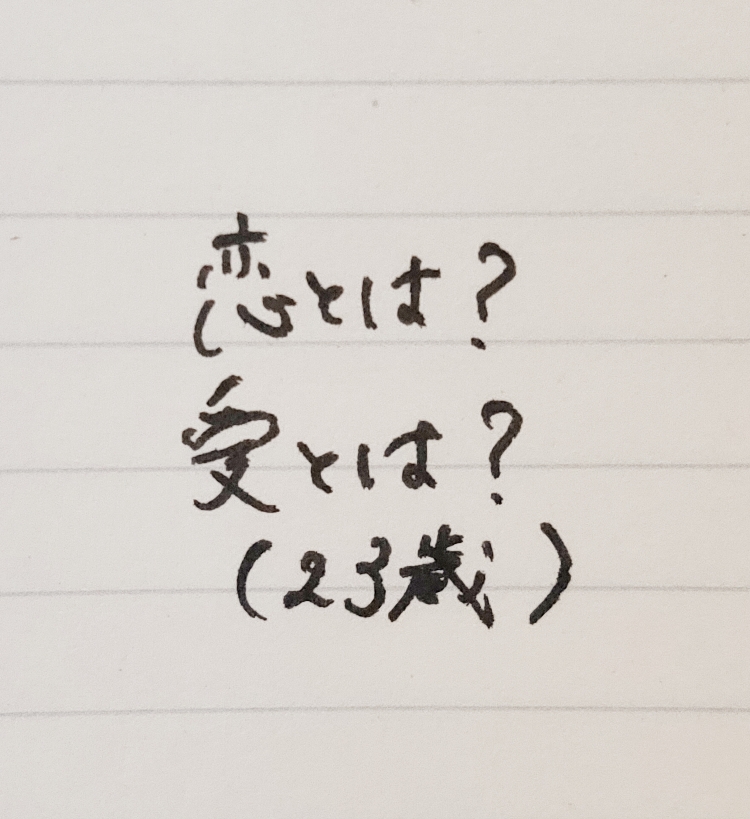 恋とは?
愛とは?
(23歳)